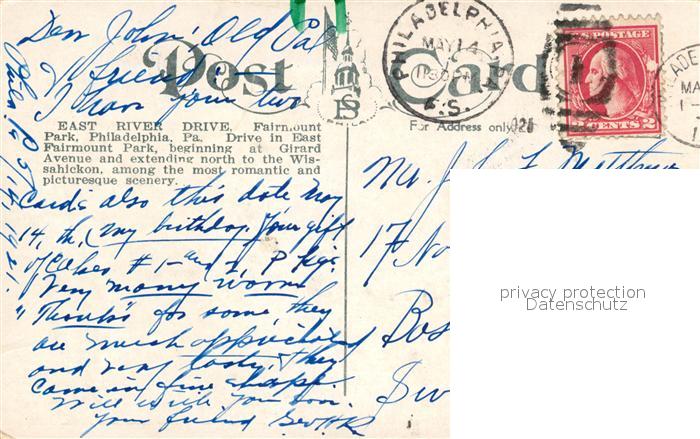 Dear John, Old Pal
& friend:—
I have your two
Post Card
PHILADELPHIA, PA.
MAY 14
1130 PM
F.S.
U.S. POSTAGE
2 CENTS 2
MA
EAST RIVER DRIVE, Fairmount
Park, Philadelphia, Pa. Drive in East
Fairmount Park, beginning at Girard
Avenue and extending north to the Wis-
sahickon, among the most romantic and
picturesque scenery.
For Address only.
Phila. Pa 5/14, 1921.
Cards also this date May
14, th, (my birthday. Your gift
of Cakes # 1- and 2, P kgs.
Very many warm
"Thanks" for same, they
are much appreciated
and very tasty, they
came in fine shape.
Will write you soon.
Your friend Geo.
Mr. J.
17 No
Bos
privacy protection
Datenschutz